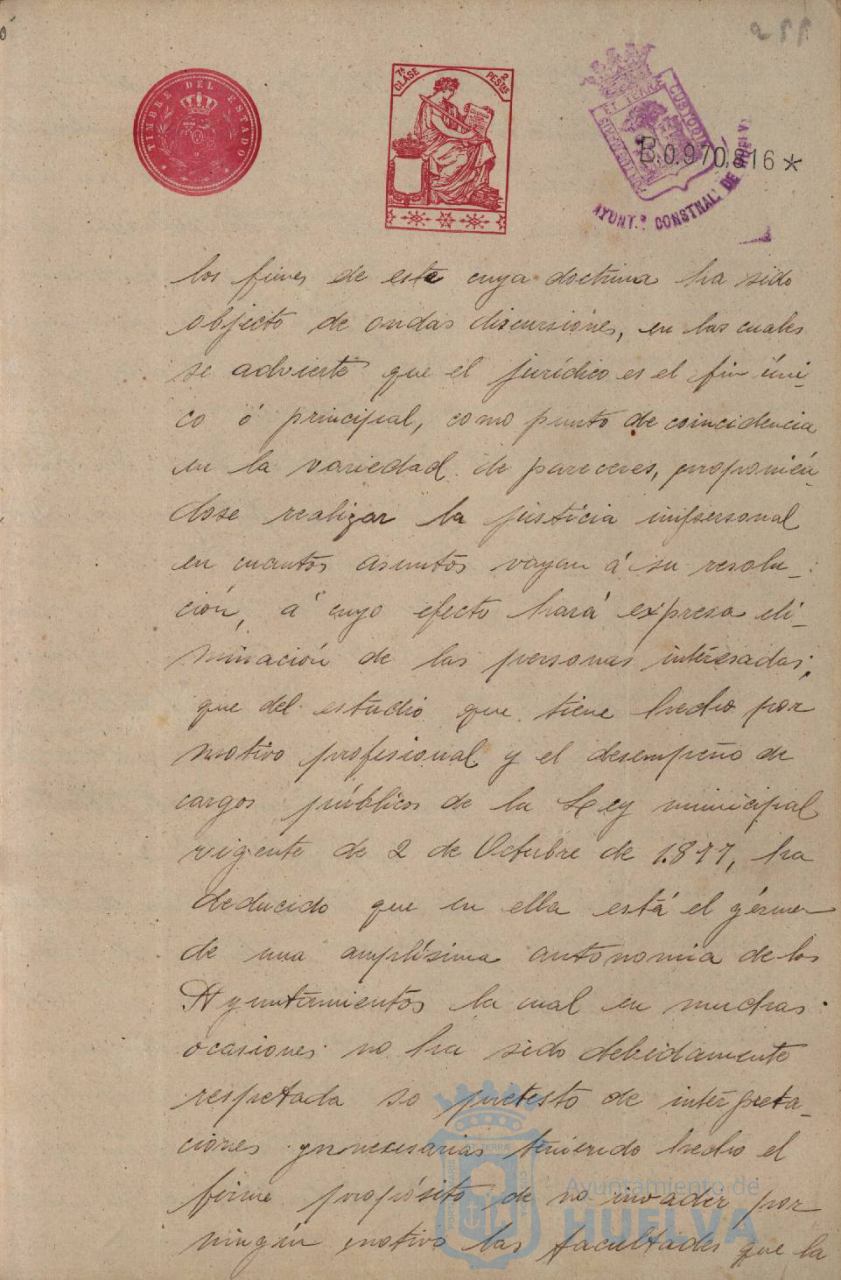 255
TIMBRE DEL ESTADO
7ª CLASE
2 PESETAS
B.0.970,816*
AYUNT.º CONSTNAL DE HUELVA
los fines de este cuya doctrina ha sido
objecto de ondas discursiones, en las cuales
se advierte que el jurídico es el fin úni-
co ó principal, como punto de coincidencia
en la variedad de pareceres, proponién-
dose realizar la justicia impersonal
en cuantos asuntos vayan á su resolu-
ción, á cuyo efecto hará expresa eli-
minación de las personas interesadas;
que del estudio que tiene hecho por
motivo profisional y el desempeño de
cargos públicos de la Ley municipal
vigente de 2 de Octubre de 1.877, ha
deducido que en ella está el gérmen
de una amplísima autonomia de los
Ayuntamientos la cual en muchas
ocasiones no ha sido debidamente
respetada so pretesto de interpreta-
ciones ynnecesarias teniendo hecho el
firme propósito de no invadir por
ningún motivo las facultades que la
Ayuntamiento de
HUELVA